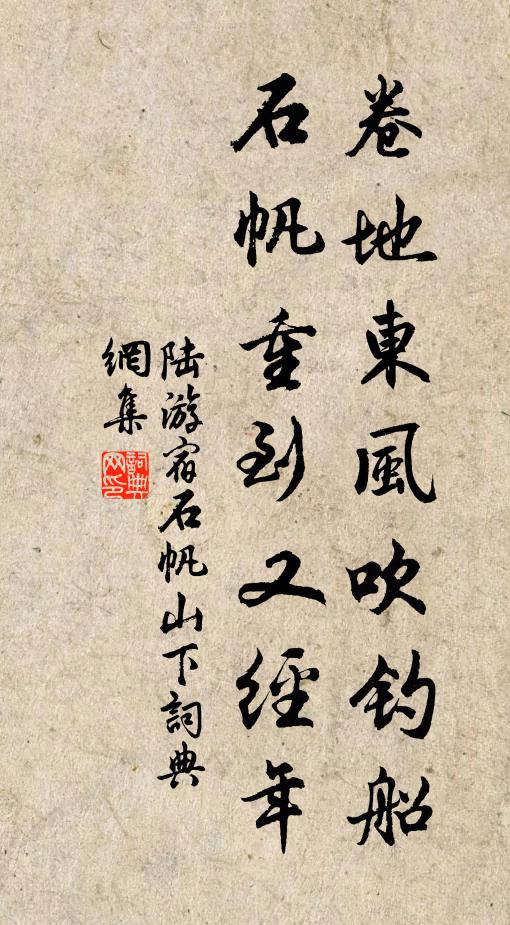 卷地東風吹釣船
石帆重到又經年
陸游宿石帆山下詞典
網集
詞典
网印